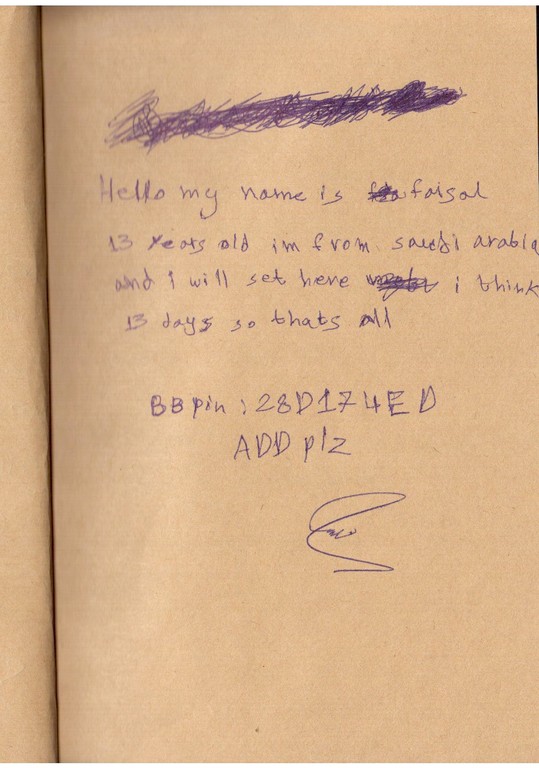 Hello my name is faisal
13 years old im from saudi arabia
and i will set here i think
13 days so thats all
BB pin : 28D174ED
ADD plz